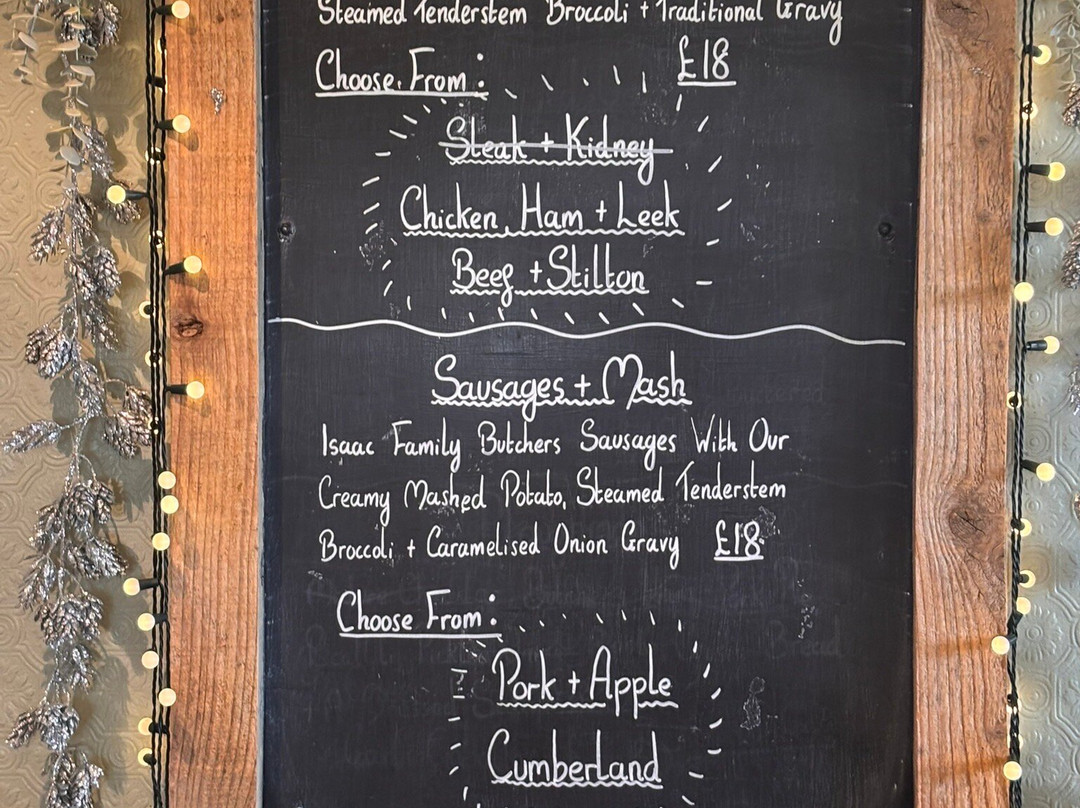 Steamed Tenderstem Broccoli + Traditional Gravy
Choose From: £18
Steak + Kidney
Chicken, Ham + Leek
Beef + Stilton
Sausages + Mash
Isaac Family Butchers Sausages With Our
Creamy Mashed Potato, Steamed Tenderstem
Broccoli + Caramelised Onion Gravy £18
Choose From:
Pork + Apple
Cumberland